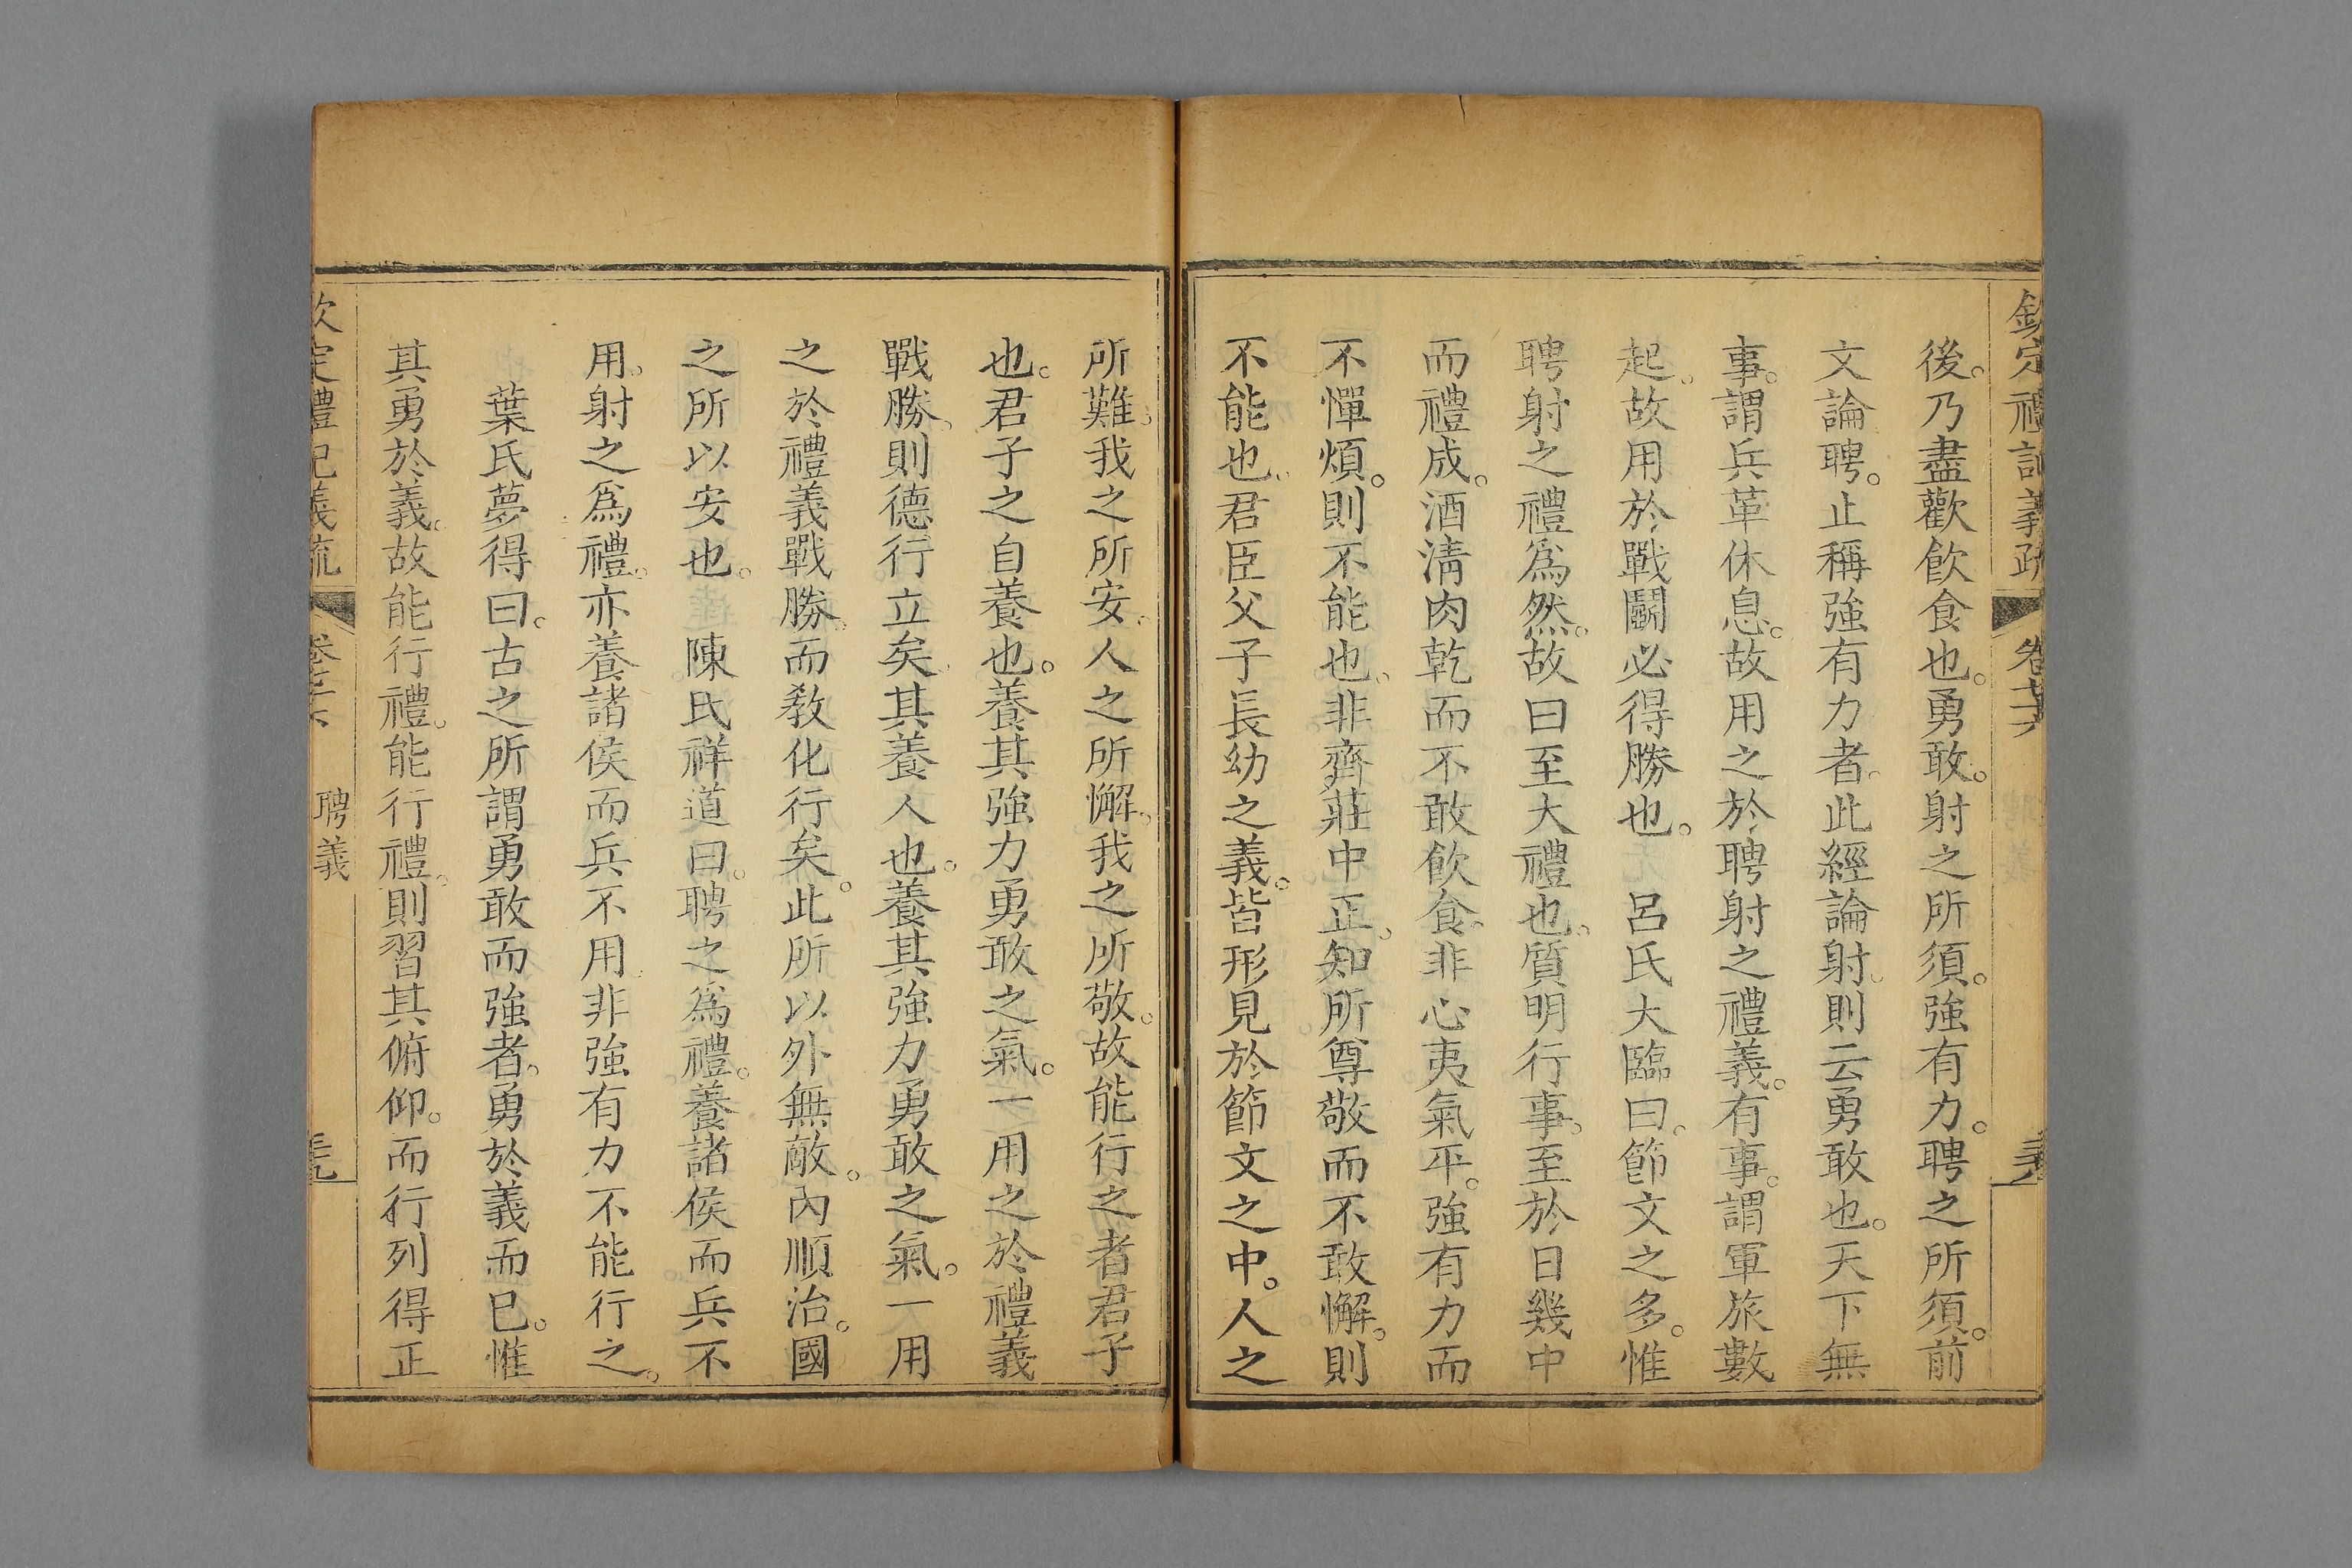 欽定禮記義疏 卷七十六
後。乃盡歡飲食也。勇敢。射之所須。強有力。聘之所須。前
文論聘。止稱強有力者。此經論射。則云勇敢也。天下無
事。謂兵革休息。故用之於聘射之禮義。有事。謂軍旅數
起。故用於戰鬭必得勝也。 呂氏大臨曰。節文之多。惟
聘射之禮爲然。故曰至大禮也。質明行事。至於日幾中
而禮成。酒清肉乾而不敢飲食。非心夷氣平。強有力而
不憚煩。則不能也。非齊莊中正。知所尊敬而不敢懈。則
不能也。君臣父子長幼之義。皆形見於節文之中。人之
所難。我之所安。人之所懈。我之所敬。故能行之者君子
也。君子之自養也。養其強力勇敢之氣。一用之於禮義
戰勝。則德行立矣。其養人也。養其強力勇敢之氣。一用
之於禮義戰勝。而教化行矣。此所以外無敵。內順治。國
之所以安也。 陳氏祥道曰。聘之爲禮。養諸侯而兵不
用。射之爲禮。亦養諸侯而兵不用。非強有力不能行之。
葉氏夢得曰。古之所謂勇敢而強者。勇於義而已。惟
其勇於義。故能行禮。能行禮。則習其俯仰。而行列得正
欽定禮記義疏 卷七十六 聘義